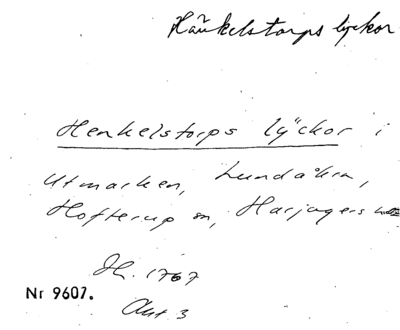 Hänkelstorps lyckor
Henkelstorps lÿckor i
Utmarken, Lundåkra,
Hofterup sn, Harjagers
H. 1767
Nr 9607.
Akt 3